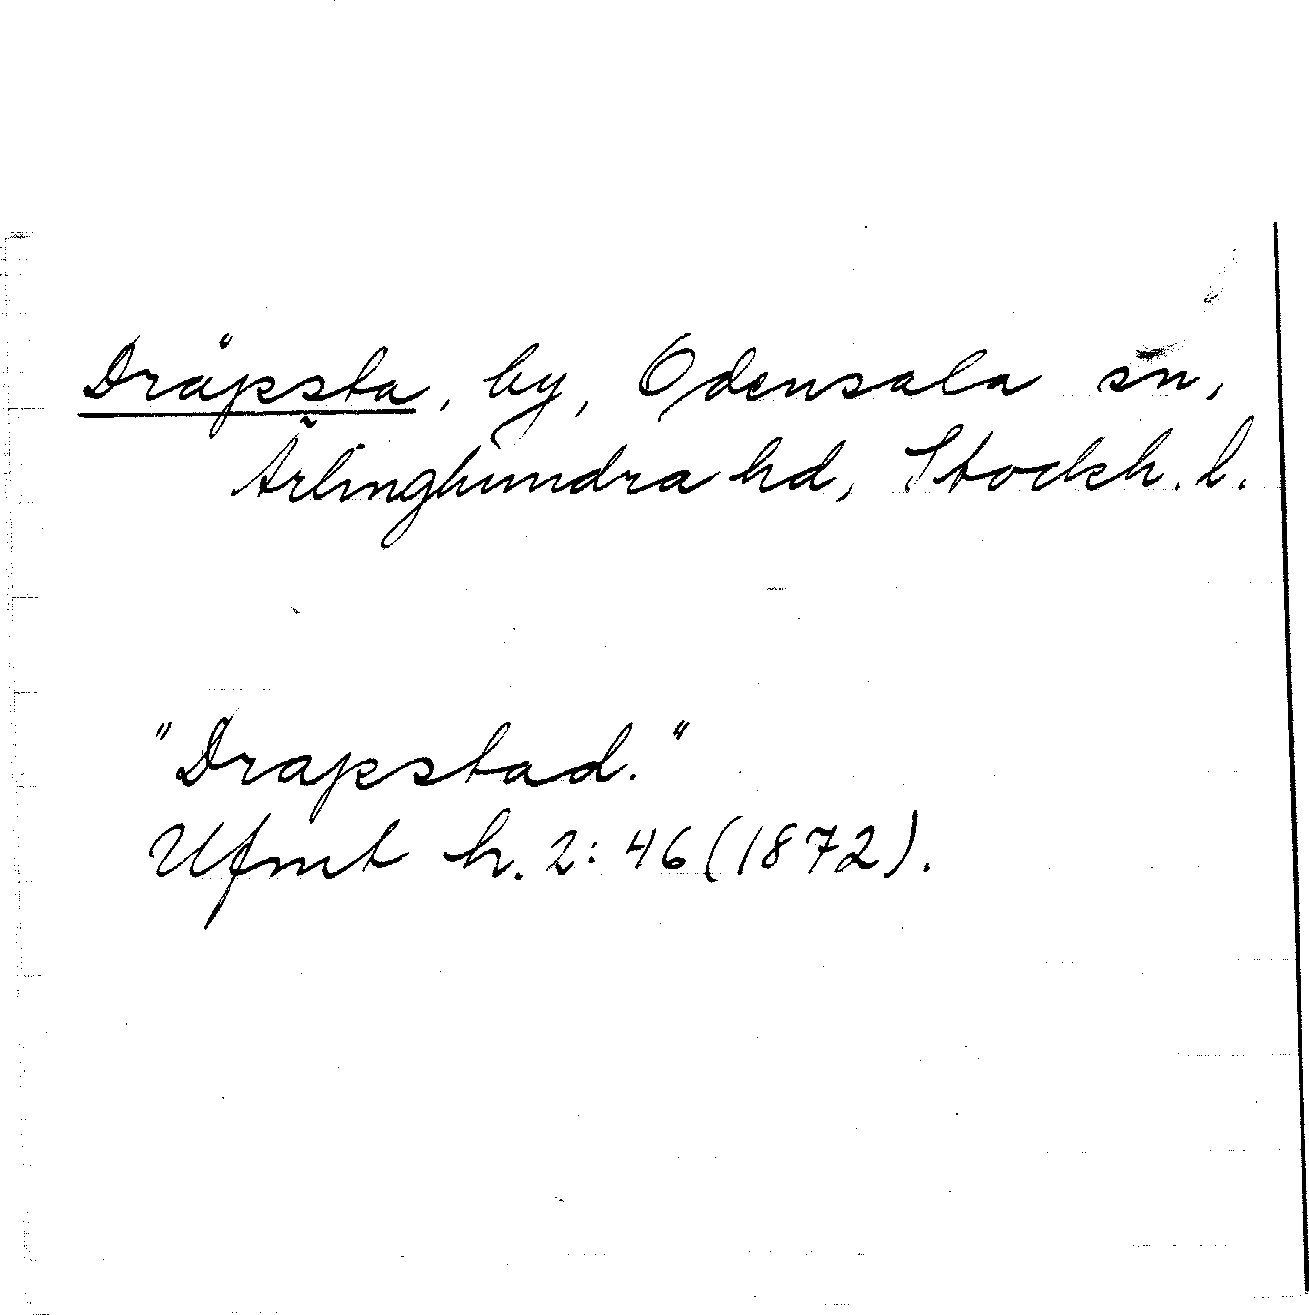 Dråpsta, by, Odensala sn,
Ärlinghundra hd, Stockh. l.
"Drapstad."
Ufmt h. 2: 46 (1872).